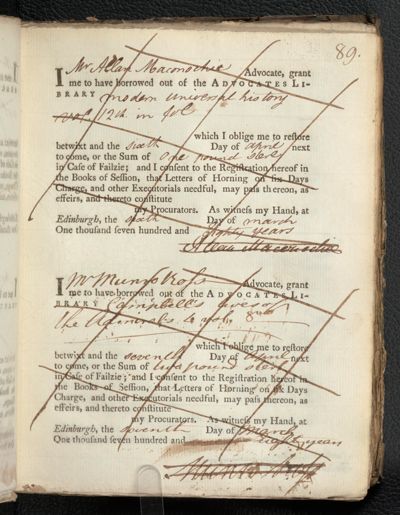 89.
I Mr Allan Maconochie Advocate, grant
me to have borrowed out of the ADVOCATES LI-
BRARY modern universal history
vol. 12th in fol
which I oblige me to restore
betwixt and the sixth Day of april next
to come, or the Sum of one pound sterl
in Case of Failzie; and I consent to the Registration hereof in
the Books of Session, that Letters of Horning on six Days
Charge, and other Executorials needful, may pass thereon, as
effeirs, and thereto constitute
my Procurators. As witness my Hand, at
Edinburgh, the sixth Day of march
One thousand seven hundred and eighty years
Allan Maconochie
I Mr Munro Ross Advocate, grant
me to have borrowed out of the ADVOCATES LI-
BRARY Campbell's lives of
the Admirals 4 vols 8vo
which I oblige me to restore
betwixt and the seventh Day of april next
to come, or the Sum of two pound sterl
in Case of Failzie; and I consent to the Registration hereof in
the Books of Session, that Letters of Horning on six Days
Charge, and other Executorials needful, may pass thereon, as
effeirs, and thereto constitute
my Procurators. As witness my Hand, at
Edinburgh, the seventh Day of march
One thousand seven hundred and eighty years
Munro Ross